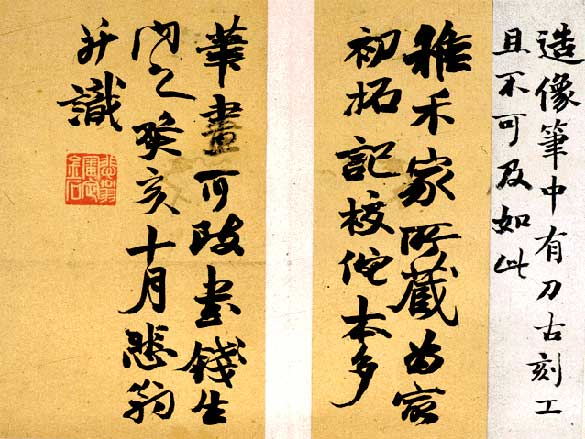 造像筆中有刀古刻工
且不可及如此
稚禾家所藏為冣
初拓記校佗本多
筆畫可跋書錢生
問之癸亥十月悲翁
并識